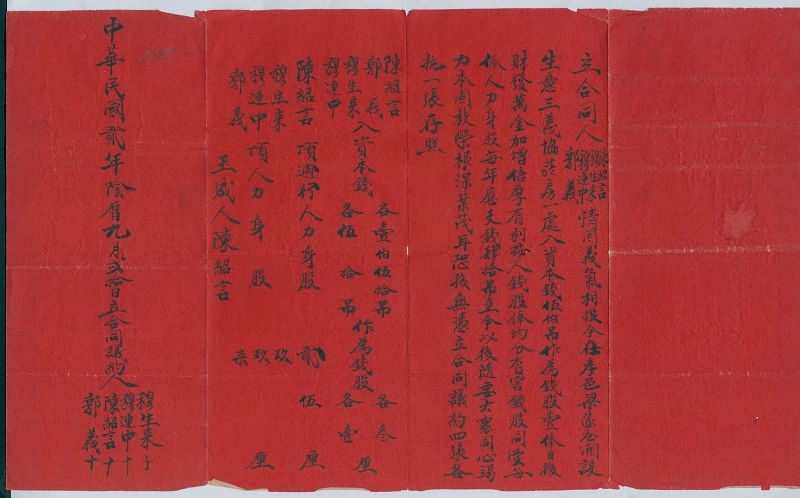 立合同人陳紹言穆生来穆連中郭義情因義氣相投今在孝邑梁家庄開設
生意三義協菸房一處入資本錢伍佰吊作為錢股壹俸日後
財發萬金加增倍厚有利按人錢股俸均分有害錢股同受每
俸人力身股每年應支錢肆拾吊至今以後隨要大衆同心竭
力本固枝榮根深葉茂耳恐後無憑立合同議約四張各
执一張存照
陳紹言
郭義
穆生来
穆連中
入資本錢
各壹伯伍拾吊
各伍拾吊
作為錢股
各叁厘
各壹厘
陳紹言頂遇行人力身股貳伍厘
穆生来
穆連中頂人力身股
郭義
玖
玖
柒
厘
王成人陳紹言
中華民國貳年陰曆九月弍拾日立合同議約人
穆生来十
穆連中十
陳紹言十
郭義十